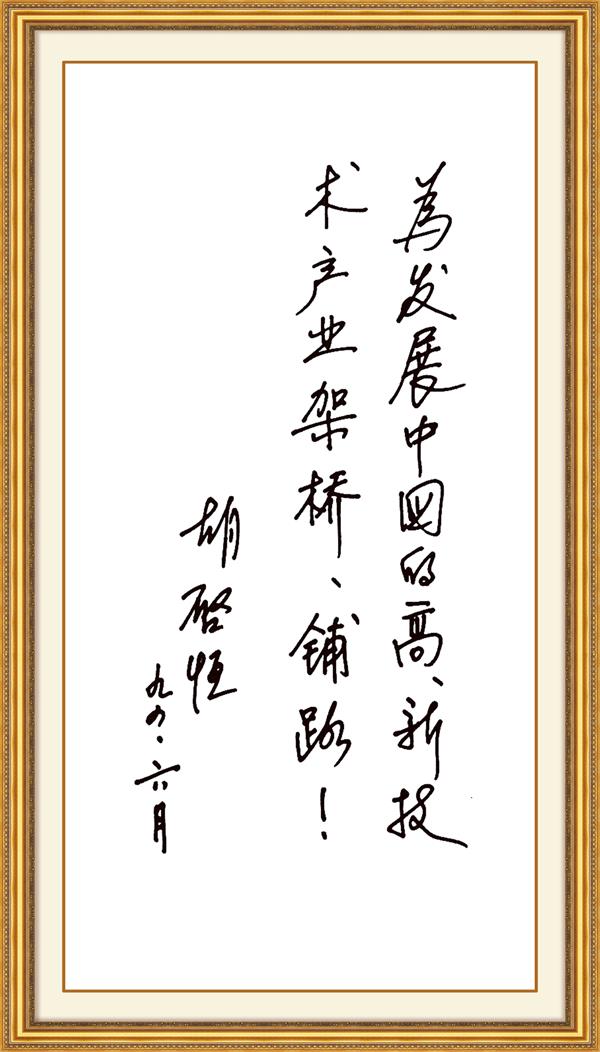 為发展中国的高、新技
术产业架桥、铺路！
胡启恒
九四.六月